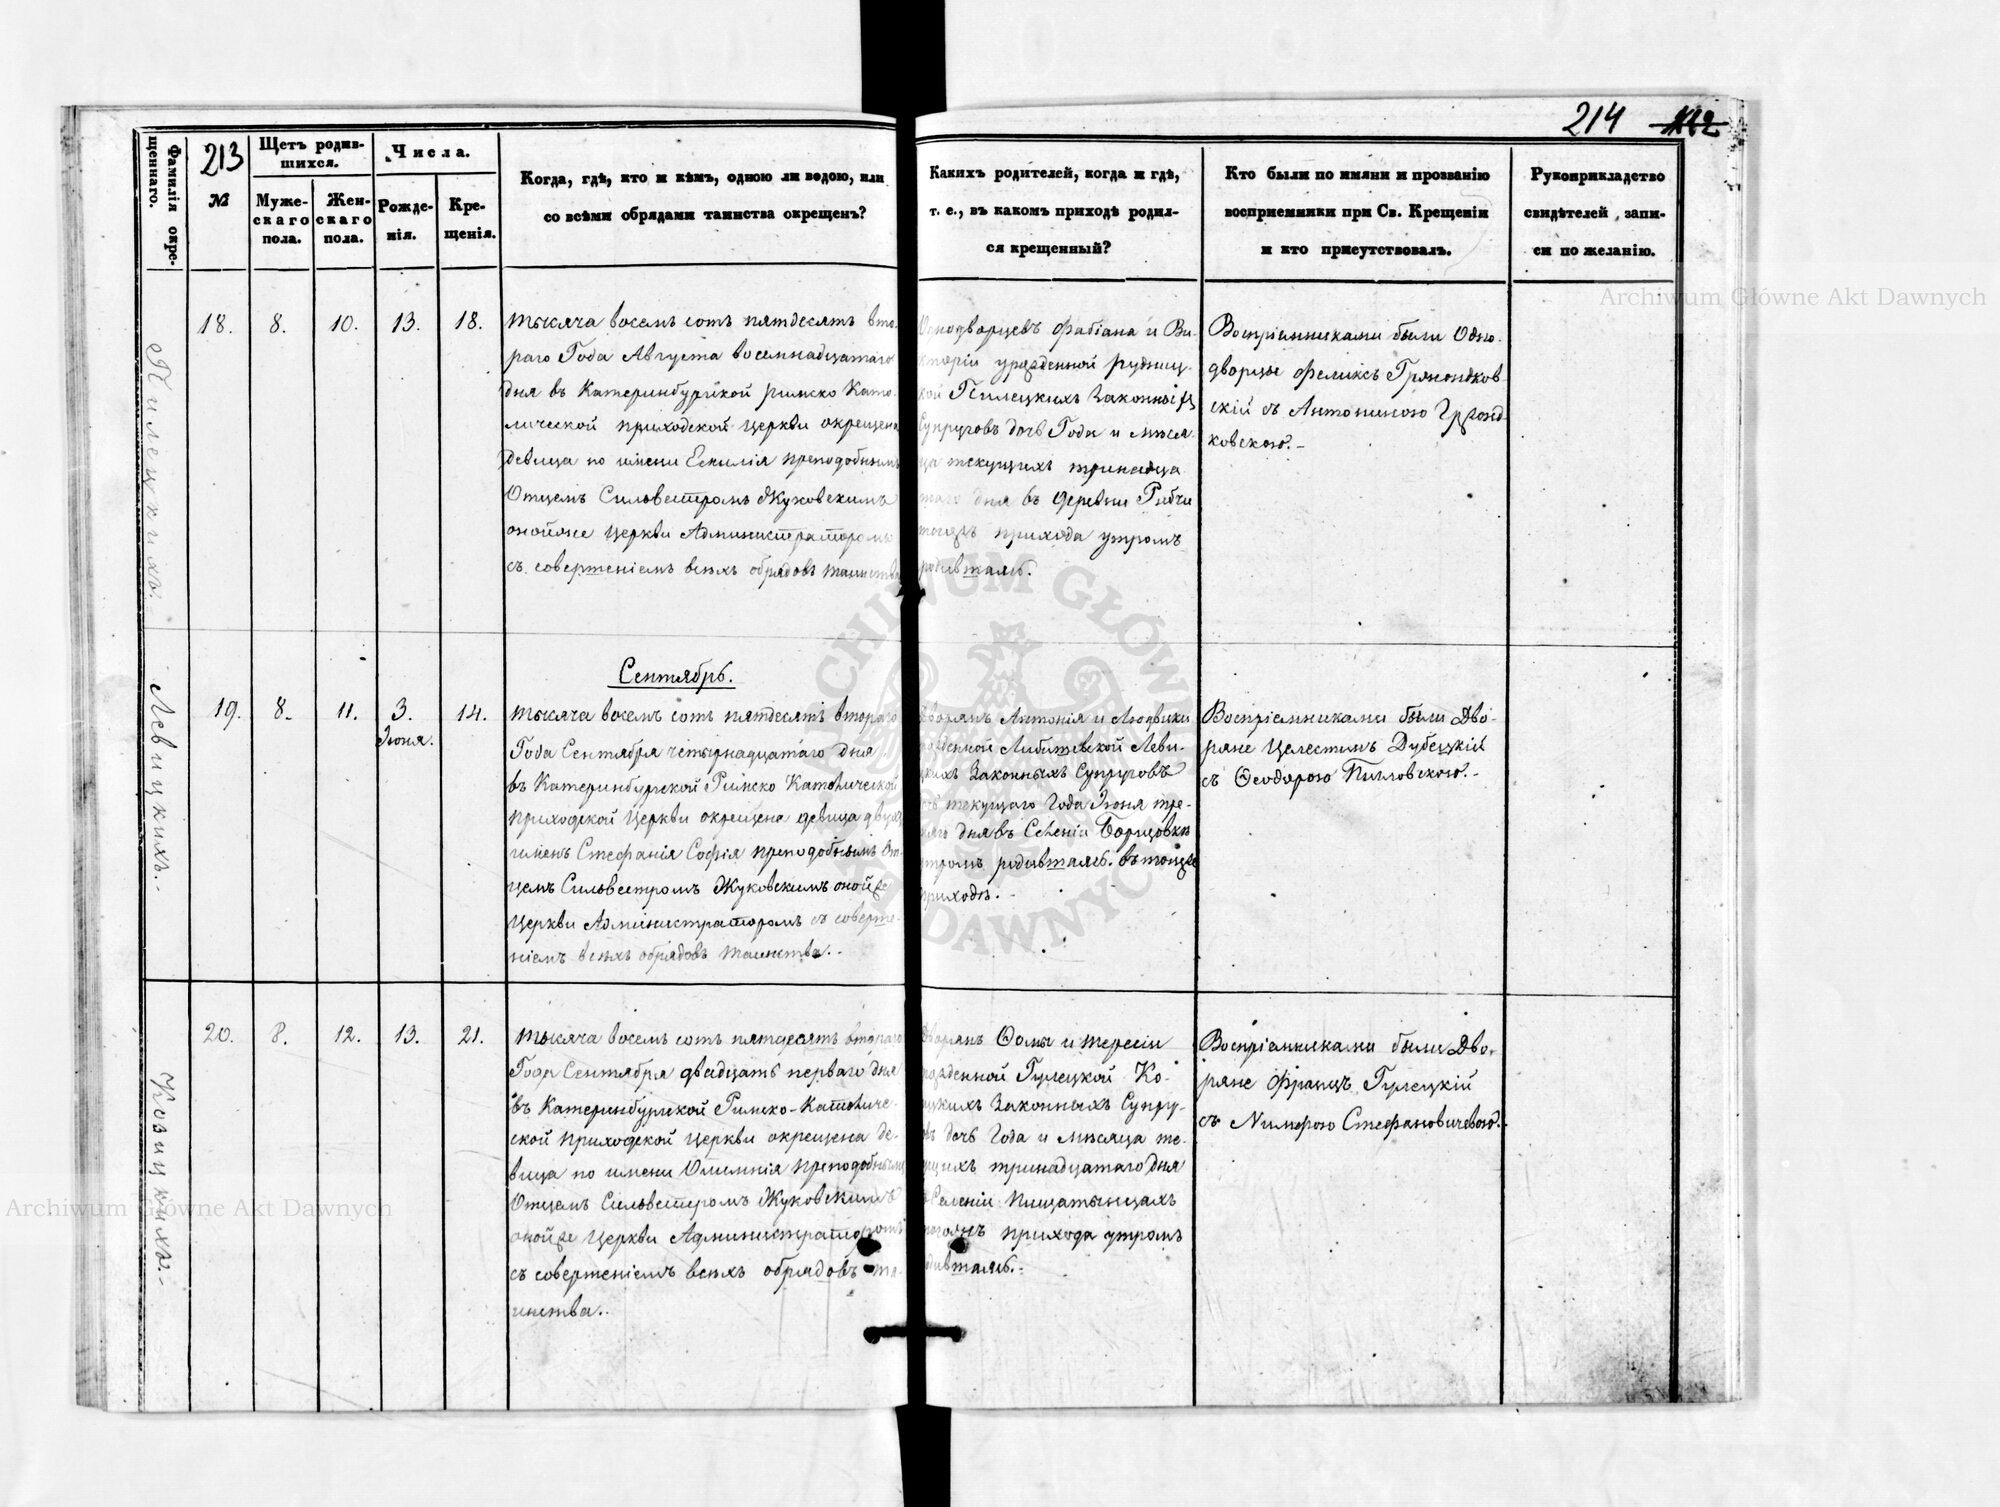 213
214
Фамилія окре-
щеннаго.
№
Щетъ родив-
шихся.
Муже-
скаго
пола.
Жен-
скаго
пола.
Числа.
Рожде-
нія.
Кре-
щенія.
Когда, гдѣ, кто и кѣмъ, одною ли водою, или
со всѣми обрядами таинства окрещенъ?
Какихъ родителей, когда и гдѣ,
т. е., въ какомъ приходѣ родил-
ся крещенный?
Кто были по имяни и прозванію
восприемники при Св. Крещеніи
и кто присутствовалъ.
Рукоприкладство
свидѣтелей, запи-
си по желанію.
Пилецкихъ.
18. 8. 10. 13. 18.
тысяча восемь сотъ пятдесятъ вто-
раго Года Августа восемнадцатаго
дня въ Катеринбургской римско Като-
лической приходской церкви окрещена
девица по имени Емилія преподобнымъ
Отцемъ Сильвестромъ Жуковскимъ
онойже церкви Администраторомъ
съ совершеніемъ всѣхъ обрядовъ таинства
Однодворцевъ Фабіана и Ви-
кторіи урожденной Рудниц-
кой Пилецкихъ Законныхъ
Супруговъ дочь Года и мѣся-
ца текущихъ тринадца
таго дня въ деревни
прихода утромъ
родившаясь.
Воспріемниками были Одно-
дворцы Феликсъ
скій съ Антониною
ковскою.-
Левицкихъ.-
Сентябрь.
19. 8. 11. 3. 14.
Іюня.
тысяча восемь сотъ пятдесятъ втораго
Года Сентября четырнадцатаго дня
въ Катеринбургской Римско Католической
приходской церкви окрещена девица двухъ
именъ Стефанія Софія преподобнымъ От-
цемъ Сильвестромъ Жуковскимъ онойже
церкви Администраторомъ съ соверше-
ніемъ всѣхъ обрядовъ таинства.-
Дворянъ Антонія и Людвики
рожденной Леви-
цкихъ Законныхъ Супруговъ
дочь текущаго Года Іюня тре-
тяго дня въ Селеніи Борщовки
утромъ родившаясь. въ томже
приходѣ.-
Воспріемниками были Дво-
ряне Целестинъ Дубецкій
съ Ѳеодорою Пилловскою.-
Козицкихъ.-
20. 8. 12. 13. 21.
тысяча восемь сотъ пятдесятъ втораго
Года Сентября двадцать перваго дня
въ Катеринбургской Римско-Католиче-
ской приходской церкви окрещена де-
вица по имени Олимпія преподобнымъ
Отцемъ Сильвестромъ Жуковскимъ
онойже церкви Администраторомъ
съ совершеніемъ всѣхъ обрядовъ та-
инства..
Дворянъ Ѳомы и Тересіи
рожденной Гулецкой Ко-
зицкихъ Законныхъ Супру-
говъ дочь Года и мѣсяца те-
кущихъ тринадцатаго дня
въ Селеніи Пищатынцахъ
прихода утромъ
родившаясь.-
Воспріемниками были Дво-
ряне Францъ Гулецкій
съ Нимфою Стефановичевою.-
Archiwum Główne Akt Dawnych
Archiwum Główne Akt Dawnych
ARCHIWUM GŁÓWNE AKT DAWNYCH